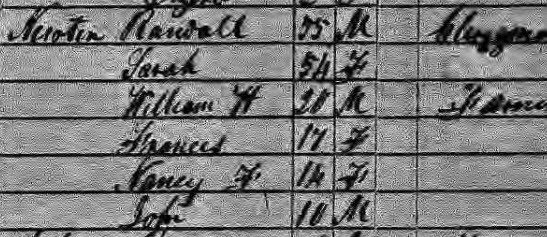 Newton Randall 55 M
Sarah 54 F
William H 20 M
Frances 17 F
Nancy F 14 F
John 10 M